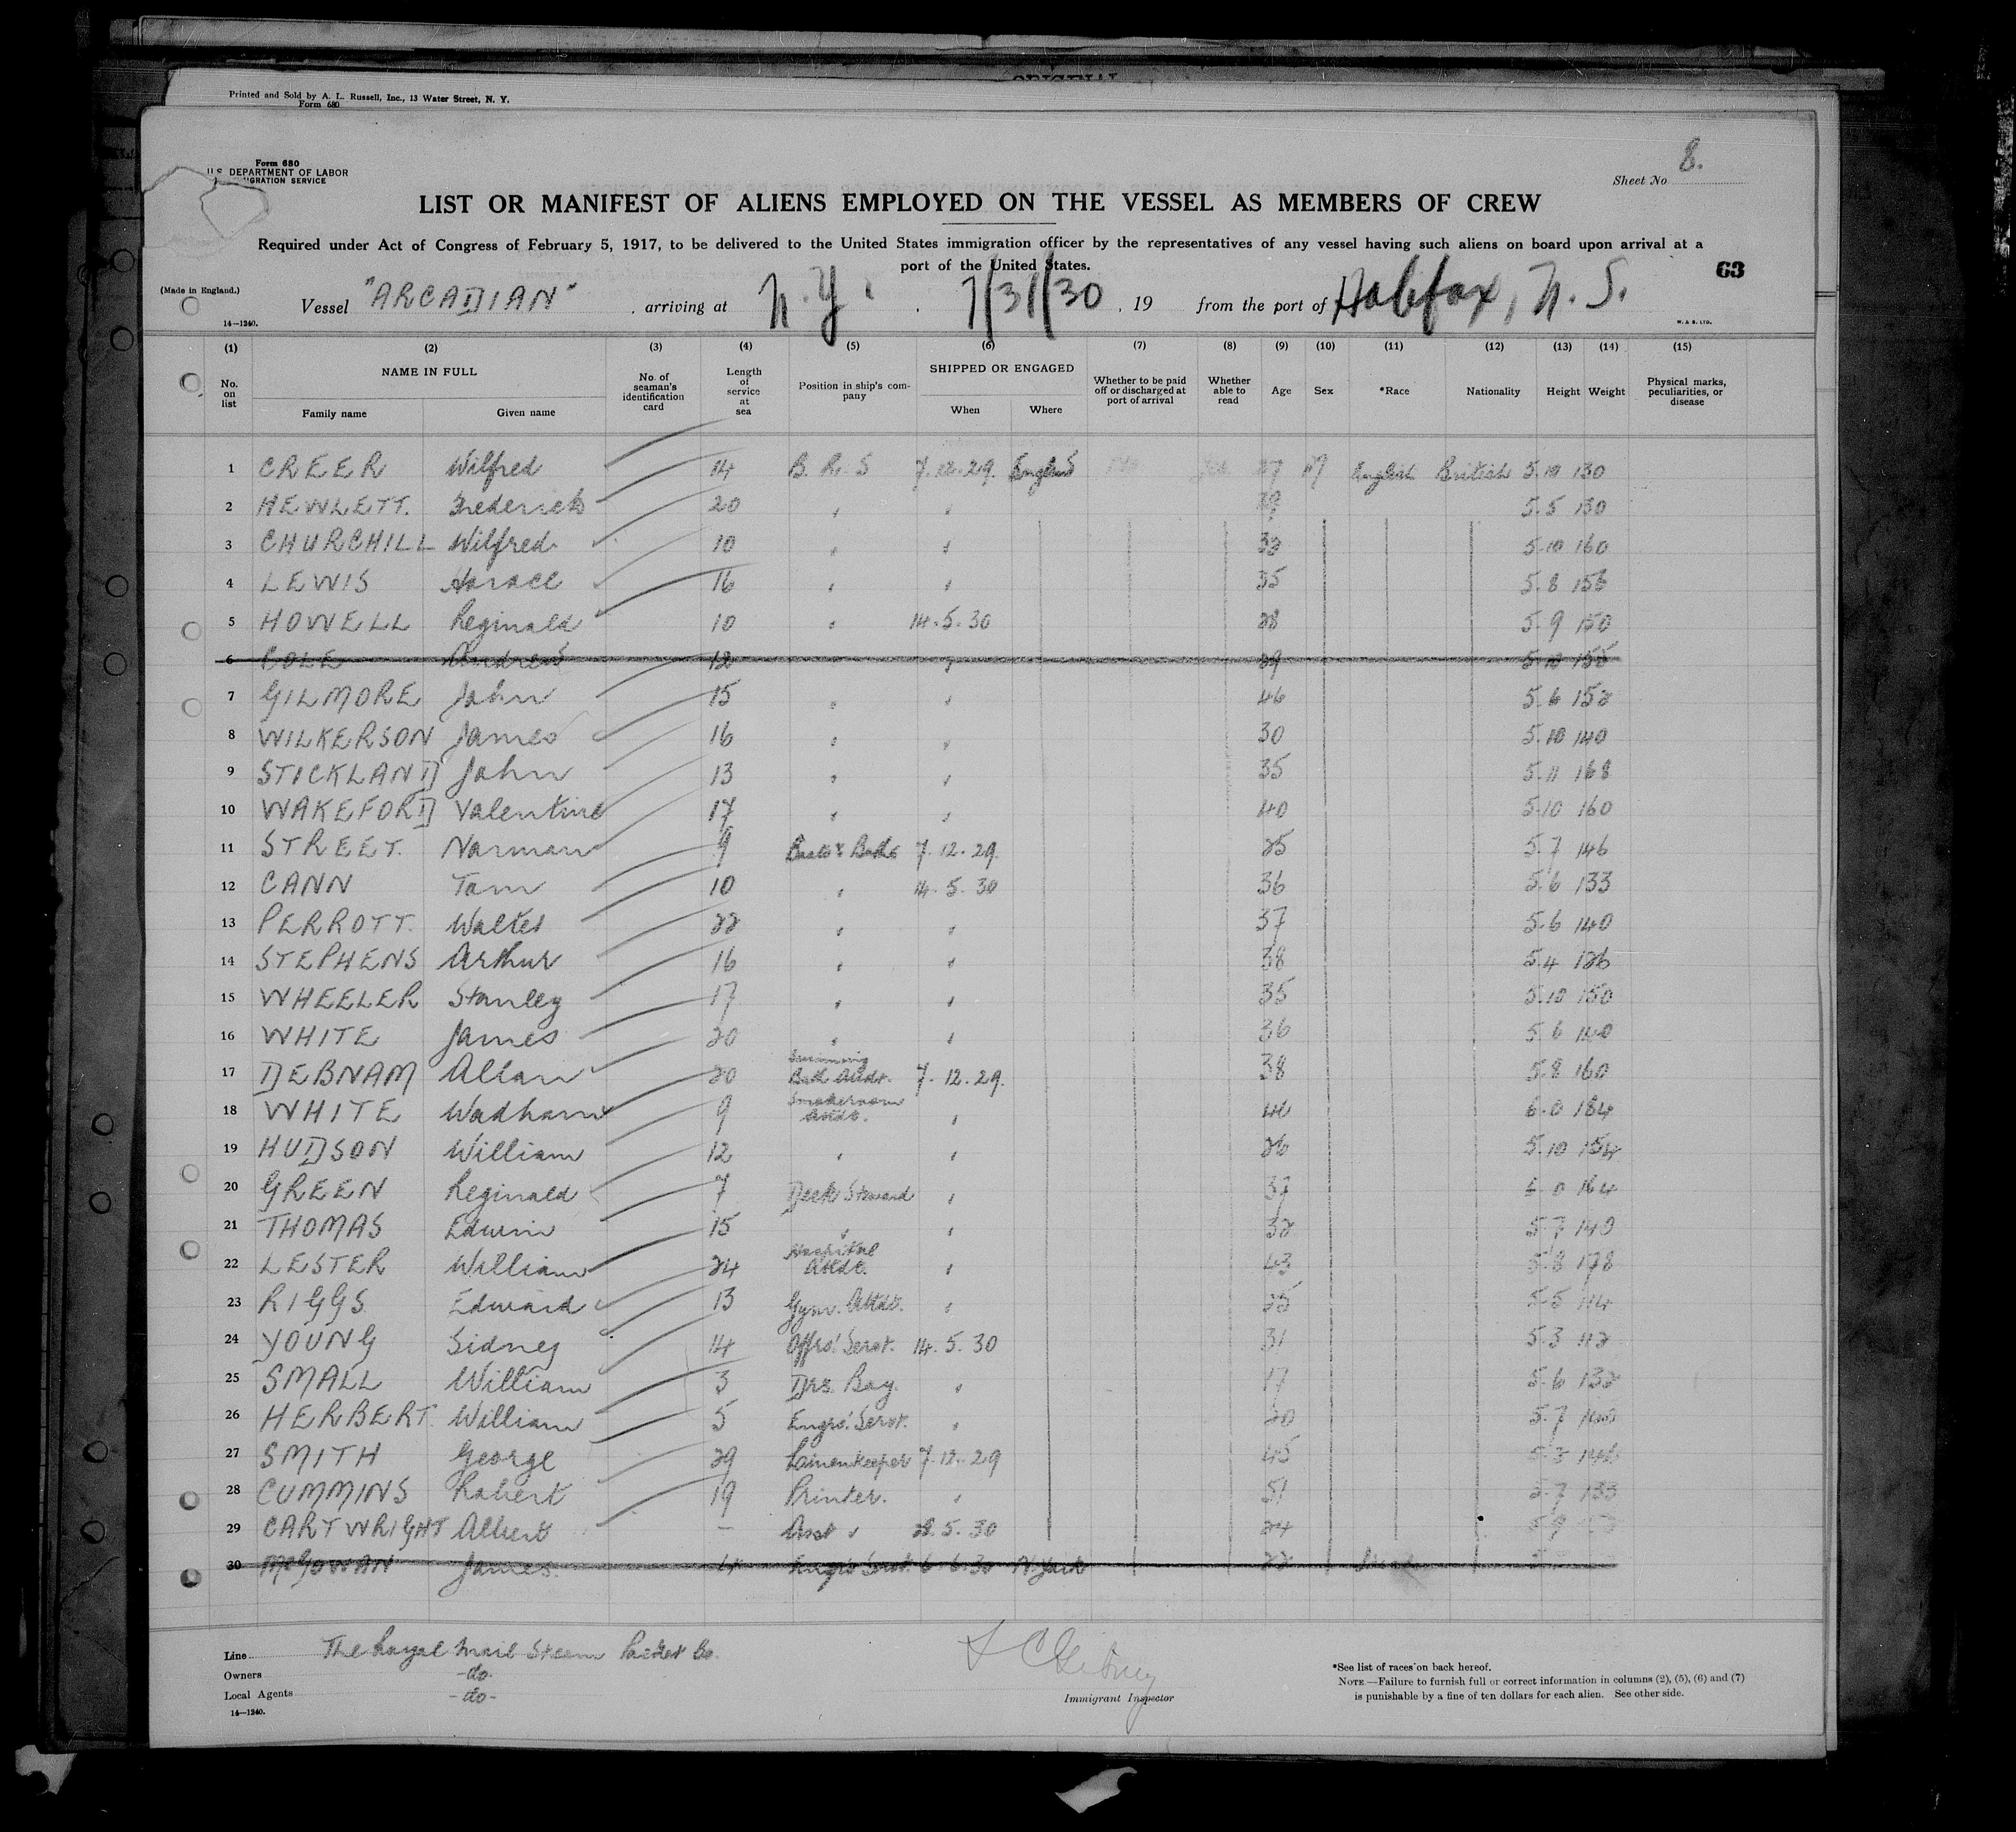 ORIGINAL
Printed and Sold by A. L. Russell, Inc., 13 Water Street, N. Y.
Form 680
Form 680
U.S. DEPARTMENT OF LABOR
IMMIGRATION SERVICE
Sheet No 8.
LIST OR MANIFEST OF ALIENS EMPLOYED ON THE VESSEL AS MEMBERS OF CREW
Required under Act of Congress of February 5, 1917, to be delivered to the United States immigration officer by the representatives of any vessel having such aliens on board upon arrival at a
port of the United States.
63
(Made in England.)
Vessel "ARCADIAN" , arriving at N. Y. , 7/31/30 , 19 from the port of Halifax, N. S.
14—1240.
W. & S. LTD.
(1) (2) (3) (4) (5) (6) (7) (8) (9) (10) (11) (12) (13) (14) (15)
No. on list NAME IN FULL Family name Given name No. of seaman's identification card Length of service at sea Position in ship's company SHIPPED OR ENGAGED When Where Whether to be paid off or discharged at port of arrival Whether able to read Age Sex *Race Nationality Height Weight Physical marks, peculiarities, or disease
1 CREER Wilfred 14 B. R. S 7.12.29. England 37 M English British 5.10 130
2 HEWLETT. Frederick 20 " " 39 5.5 130
3 CHURCHILL Wilfred 10 " " 32 5.10 160
4 LEWIS Horace 16 " " 35 5.8 156
5 HOWELL Reginald 10 " 14.5.30 28 5.9 150
6 COLE Andrew 12 " 29 5.10 155
7 GILMORE John 15 " " 46 5.6 152
8 WILKERSON James 16 " " 30 5.10 140
9 STICKLAND John 13 " " 35 5.11 168
10 WAKEFORD Valentine 17 " " 40 5.10 160
11 STREET. Norman 9 7.12.29. 25 5.7 146
12 CANN Tom 10 " 14.5.30 36 5.6 133
13 PERROTT. Walter 22 " " 37 5.6 140
14 STEPHENS Arthur 16 " " 38 5.4 126
15 WHEELER Stanley 17 " " 35 5.10 150
16 WHITE James 20 " " 36 5.6 140
17 DEBNAM Allan 20 Swimming Bath Attdt. 7.12.29. 38 5.8 160
18 WHITE Wadham 9 Smokeroom Attdt. " 40 6.0 184
19 HUDSON William 12 " " 26 5.10 154
20 GREEN Reginald 7 Deck Steward " 37 0 164
21 THOMAS Edwin 15 " " 32 5.7 140
22 LESTER William 24 Hospital Attdt. " 43 5.8 178
23 RIGGS Edward 13 Gym. Attdt. " 25 5.5 114
24 YOUNG Sidney 14 Offrs! Servt. 14.5.30 31 5.3 112
25 SMALL William 3 Drs. Boy. " 17 5.6 132
26 HERBERT. William 5 Engrs! Servt. " 20 5.7
27 SMITH George 29 Linenkeeper 7.12.29 45 5.3 146
28 CUMMINS Robert 19 Printer. " 51 5.7 133
29 CARTWRIGHT Albert – Asst " 28.5.30 24 5.9
30 McGOWAN James. 4 Engrs Servt. 6.6.30 N. York 22
Line The Royal Mail Steam Packet Co.
Owners -do.
Local Agents -do-
14—1240.
Immigrant Inspector
*See list of races on back hereof.
NOTE.—Failure to furnish full or correct information in columns (2), (5), (6) and (7)
is punishable by a fine of ten dollars for each alien. See other side.